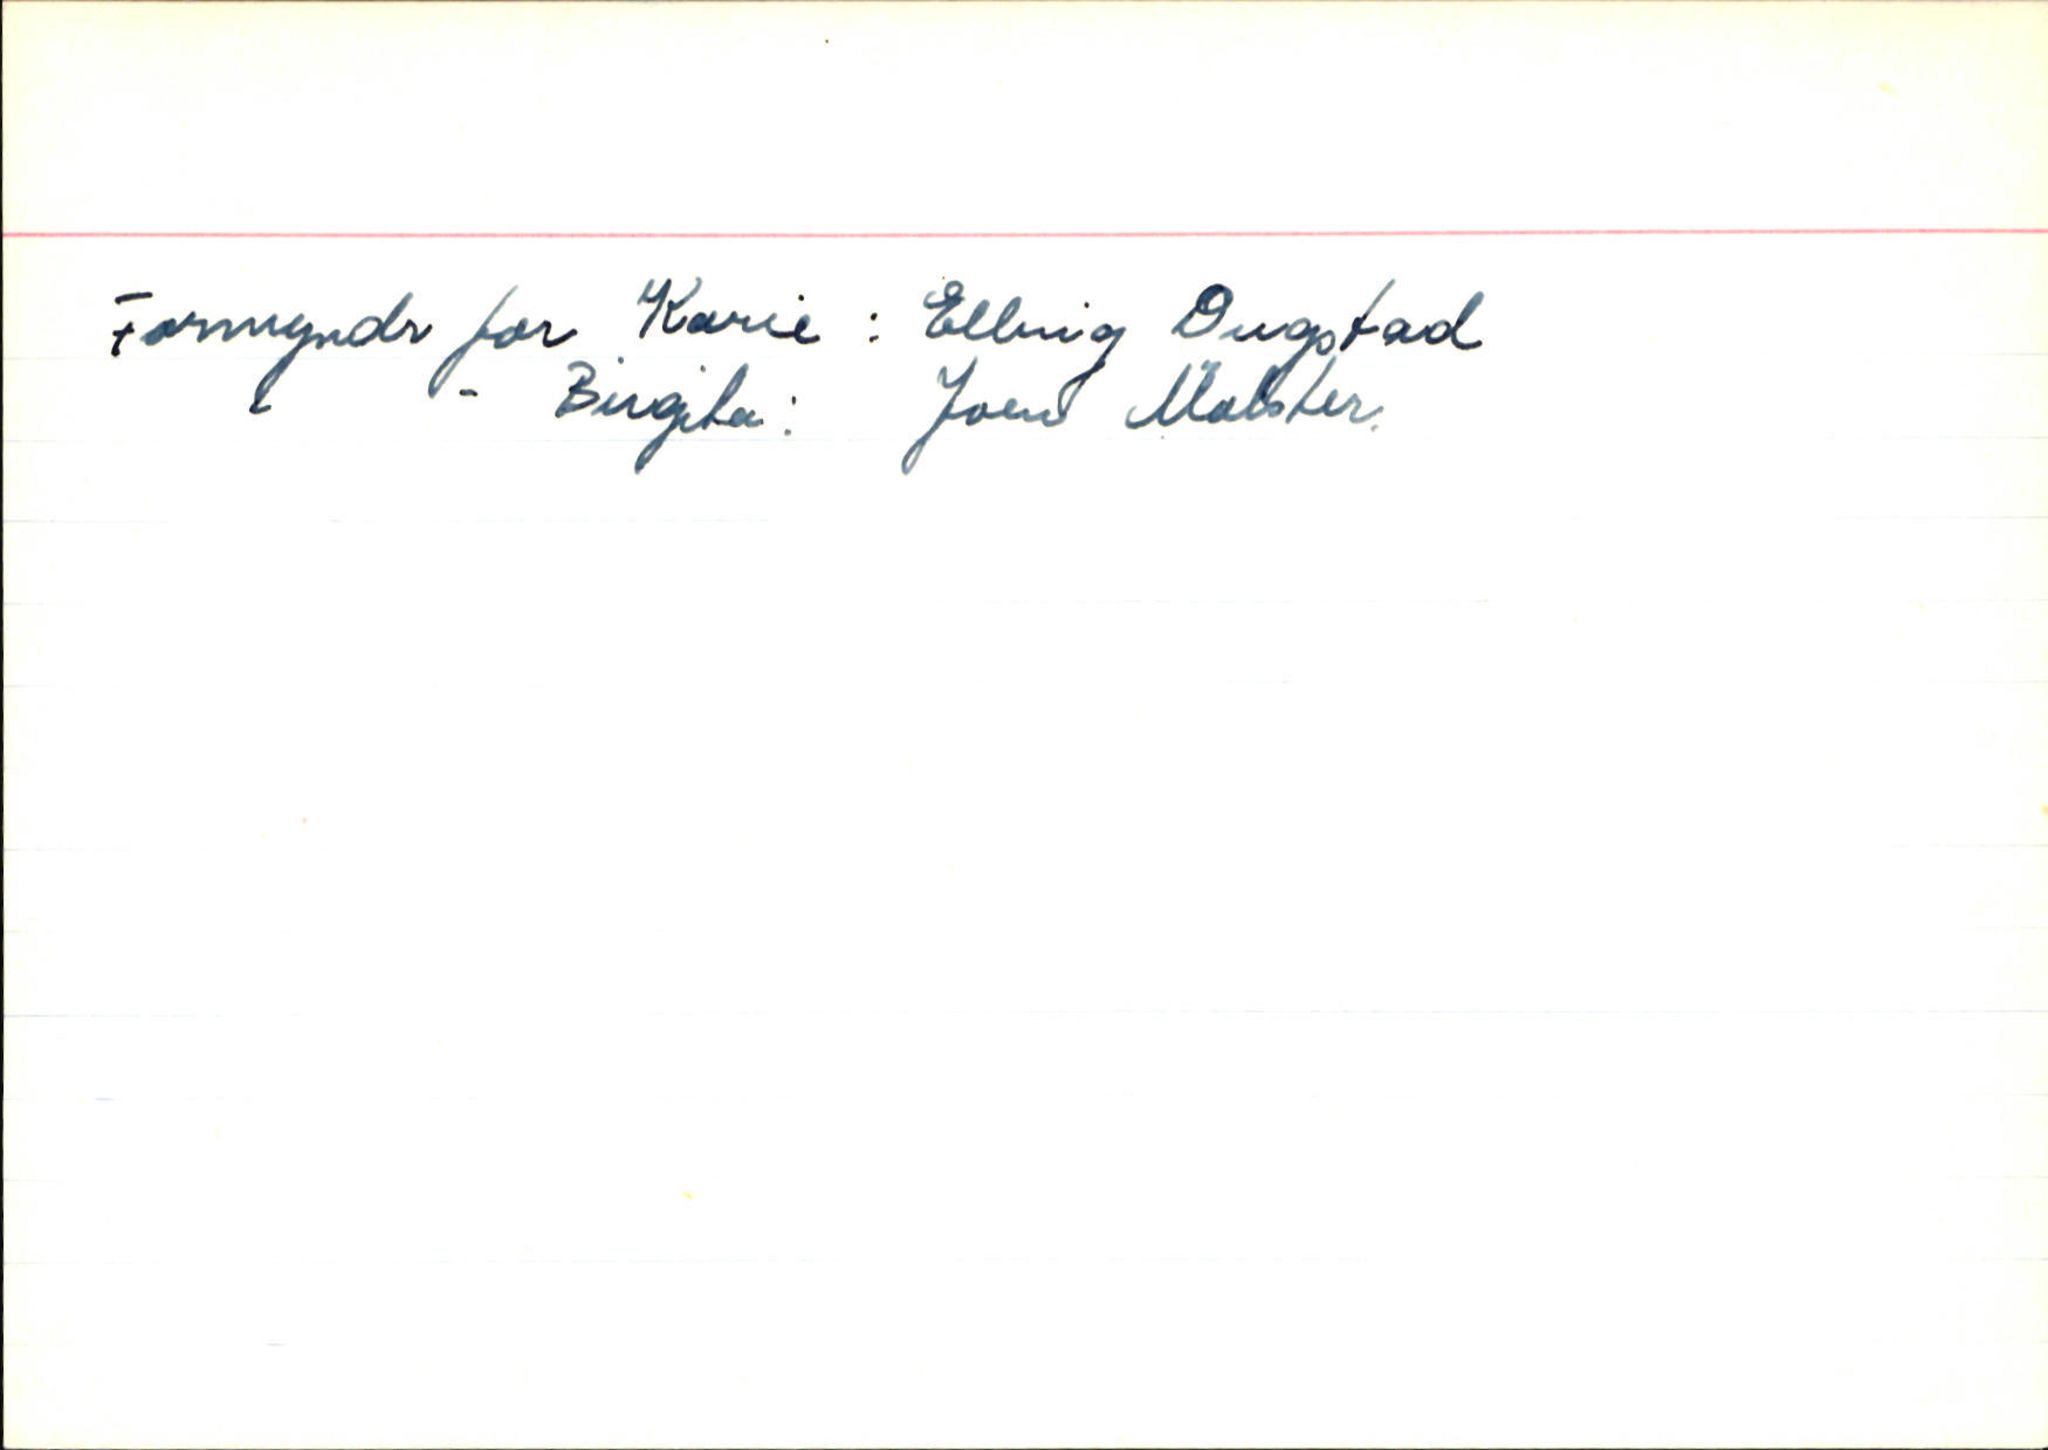 Formyndr for Karie : Elling Dugstad
- Birgita: Joen Mølster.